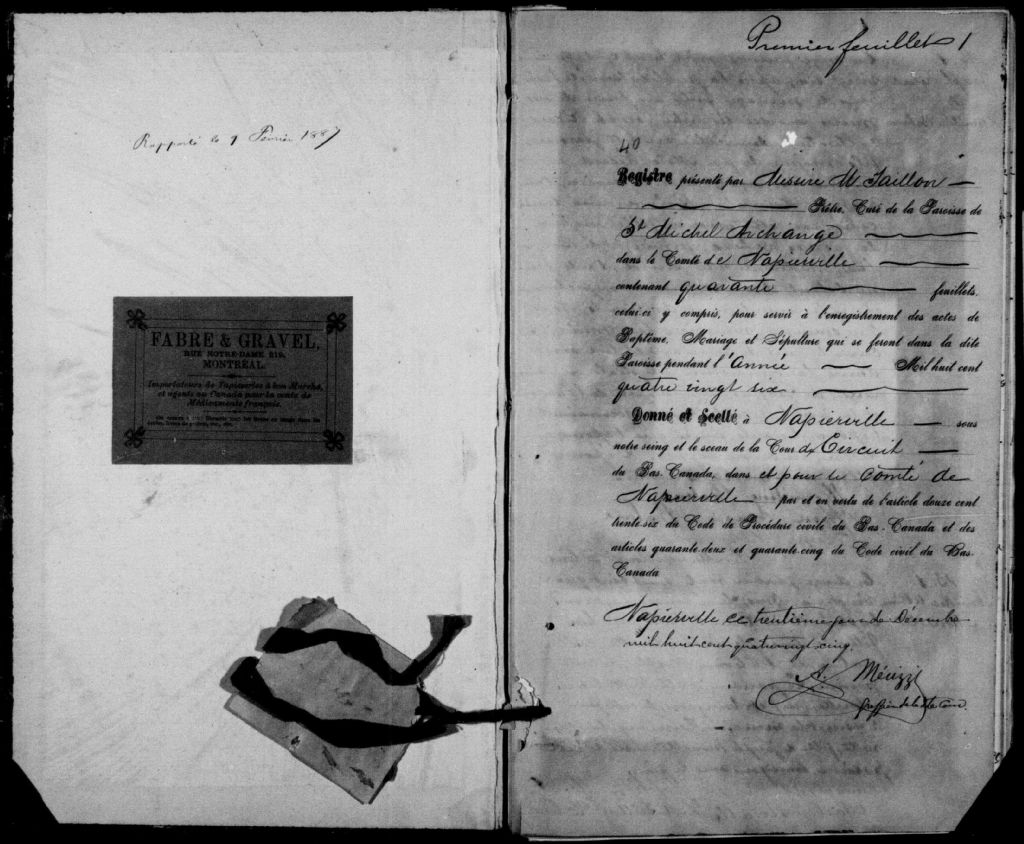 Rapporté le 9 Février 1887
FABRE & GRAVEL,
RUE NOTRE-DAME 219,
MONTRÉAL.
Importateurs de Tapisseries à bon Marché,
et agents au Canada pour la vente de
Médicaments français.
Premier feuillet 1
40
Registre présenté par Messire M. Taillon
Prêtre, Curé de la Paroisse de
St Michel Archange
dans le Comté de Napierville
contenant quarante feuillets,
celui-ci y compris, pour servir à l'enregistrement des actes de
Baptême, Mariage et Sépulture qui se feront dans la dite
Paroisse pendant l'Année Mil huit cent
quatre vingt six
Donné et Scellé à Napierville sous
notre seing et le sceau de la Cour de Circuit
du Bas-Canada, dans et pour le Comté de
Napierville par et en vertu de l'article douze cent
trente-six du Code de Procédure civile du Bas-Canada et des
articles quarante-deux et quarante-cinq du Code civil du Bas-
Canada
Napierville ce trentième jour de Décembre
mil huit cent quatrevingt cinq.
A. Mérizzi
Greffier de la dte Cour